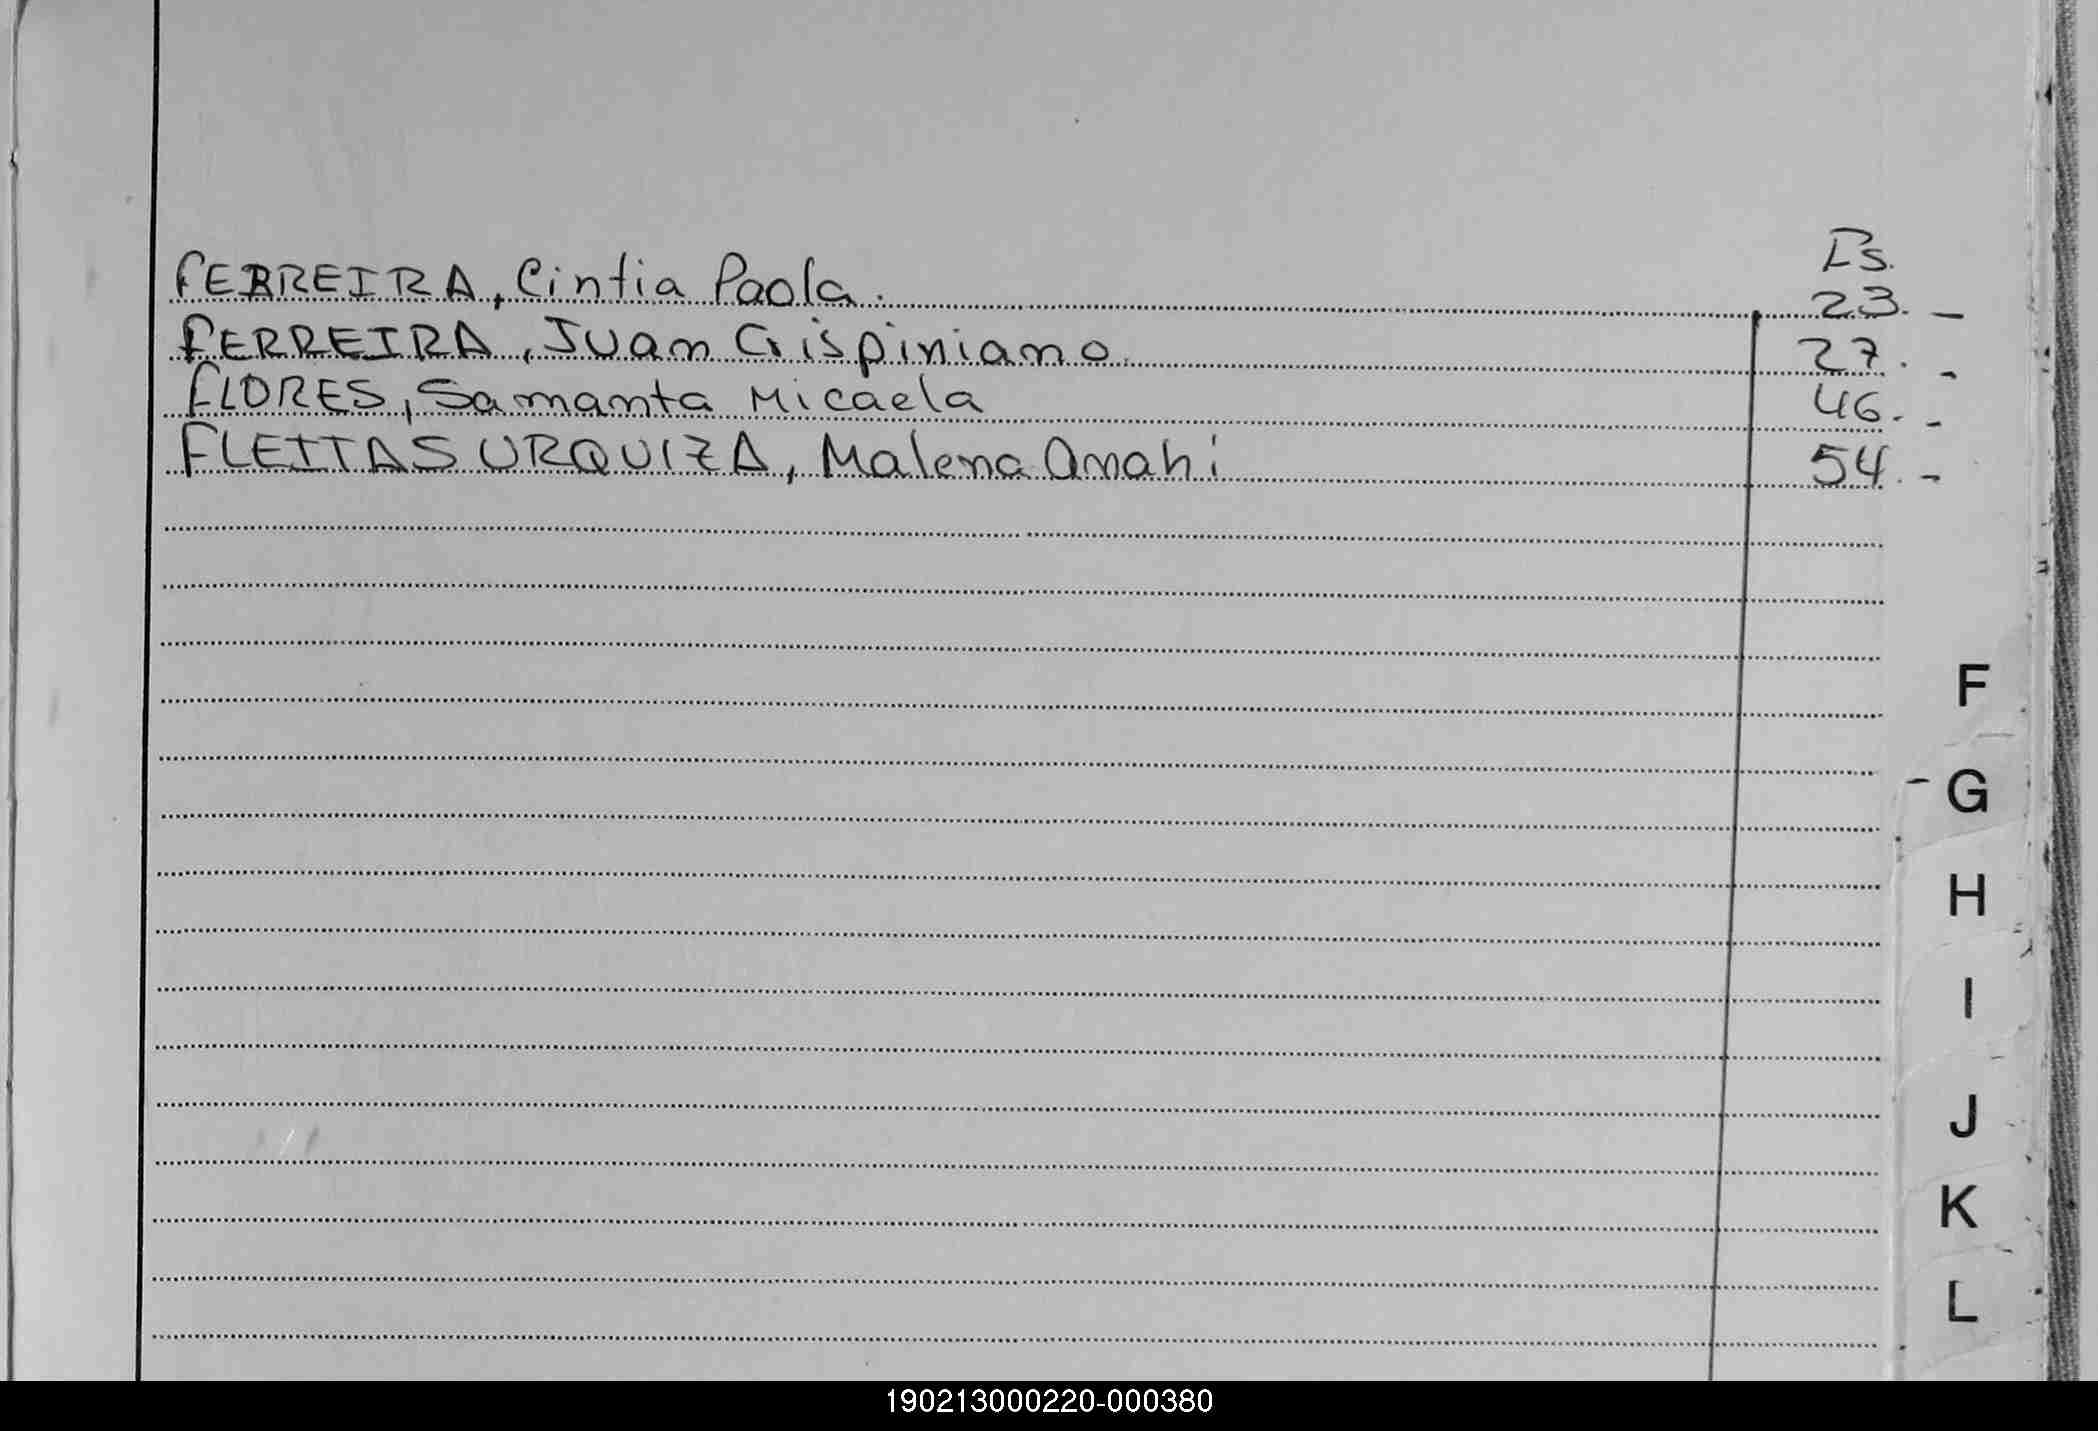 Ds.
FERREIRA, Cintia Paola. 23. -
FERREIRA, Juan Crispiniano. 27. -
FLORES, Samanta Micaela 46. -
FLEITAS URQUIZA, Malena Anahi 54. -
F
- G
H
I
J
K
L
190213000220-000380